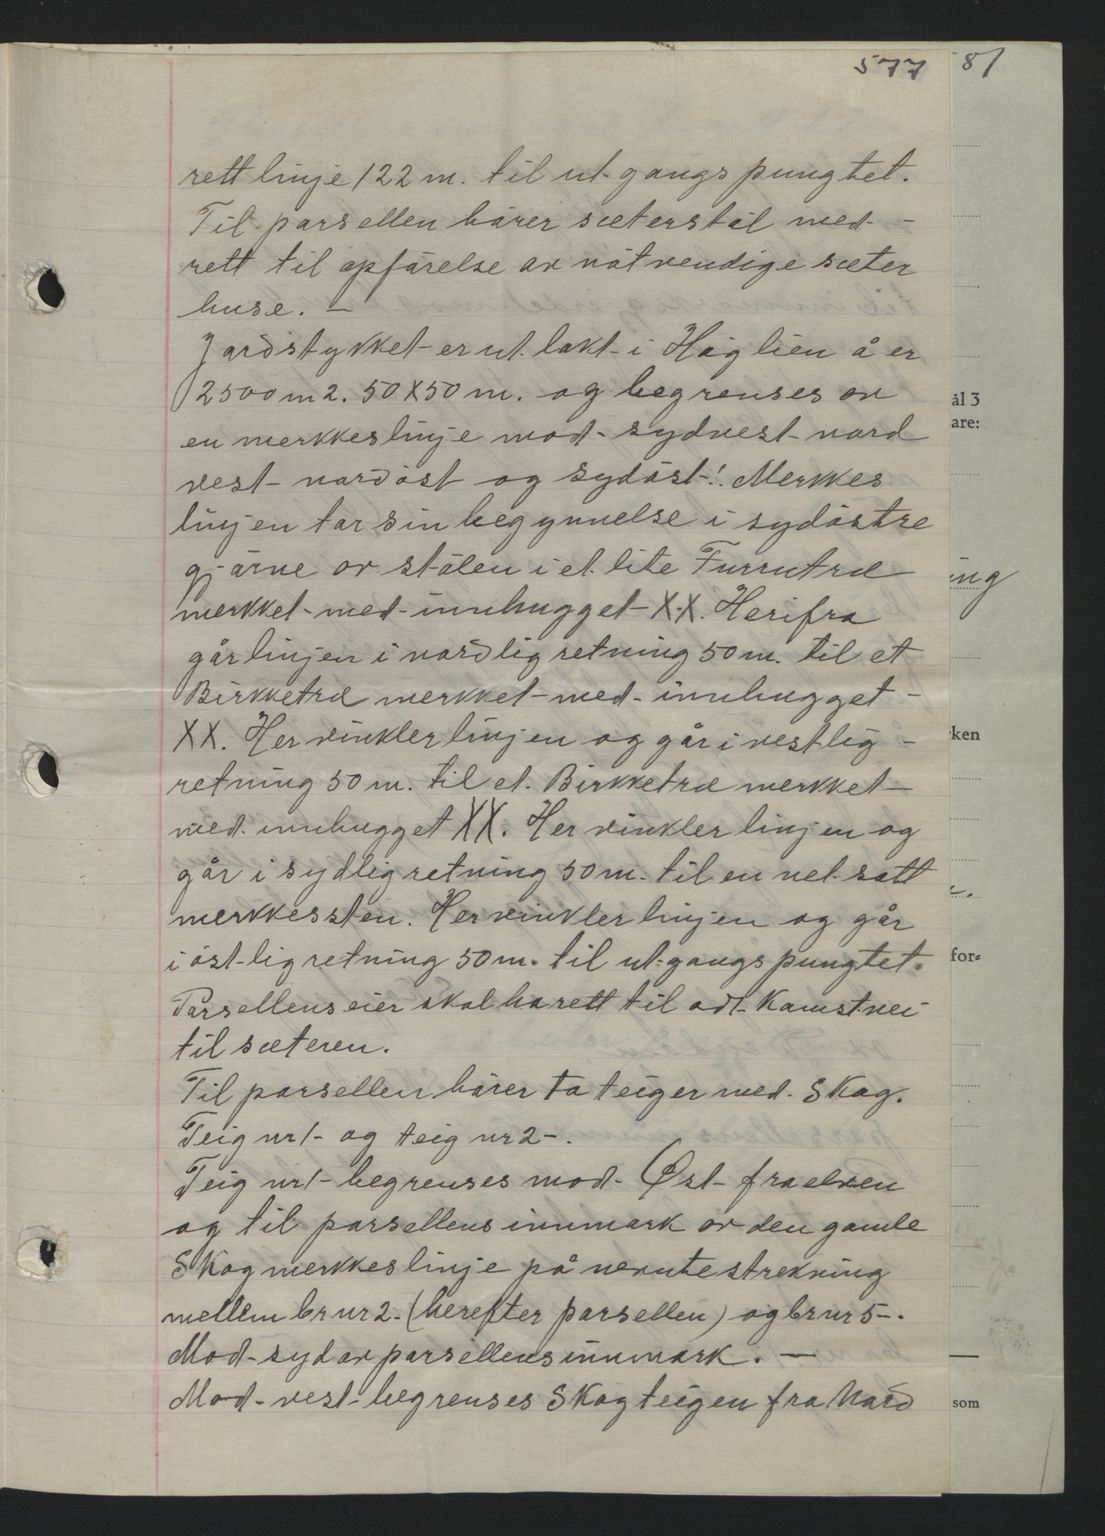 577 81
rett linje 122 m. til ut-gangspungtet.
Til parsellen hårer sæterstøl med-
rett til opførelse av nøtvendige sæter
huse. -
Jordstykket er ut.lakt i Høglien å er
2500 m2. 50X50 m. og begrenses av
en merkkeslinje mod- sydvest- nord
vest- nordøst og sydøst-! Merkkes
linjen tar sin begynnelse i sydøstre
gjørne av stølen i et. lite Furrutræ
merkket- med- innhugget- X.X. Herifra
går linjen i nordlig retning 50 m. til et
Birkketræ merkket- med- innhugget-
XX. Her vinkler linjen og går i vestlig-
retning 50 m. til et. Birkketræ merkket-
med. innhugget XX. Her vinkler linjen og
går i sydlig retning 50 m. til en net. satt
merkkessten. Her vinkler linjen og går
i øst-lig retning 50 m. til ut-gangspungtet.
Parsellens eier skal ha rett til adt-Kamst.vei
til sæteren.
Til parsellen hårer to teiger med- Skog.
Teig nr 1- og teig nr 2-.
Teig nr 1- begrenses mod- Øst- fra elven
og til parsellens innmark av den gamle
Skogmerkkeslinje på nevnte strekning
mellem br nr 2- (herefter parsellen) og br nr 5-.
Mod- syd av parsellens innmark. -
Mod- vest- begrenses Skogteigen fra Nord
ål 3
are:
ing
ken
for-
som